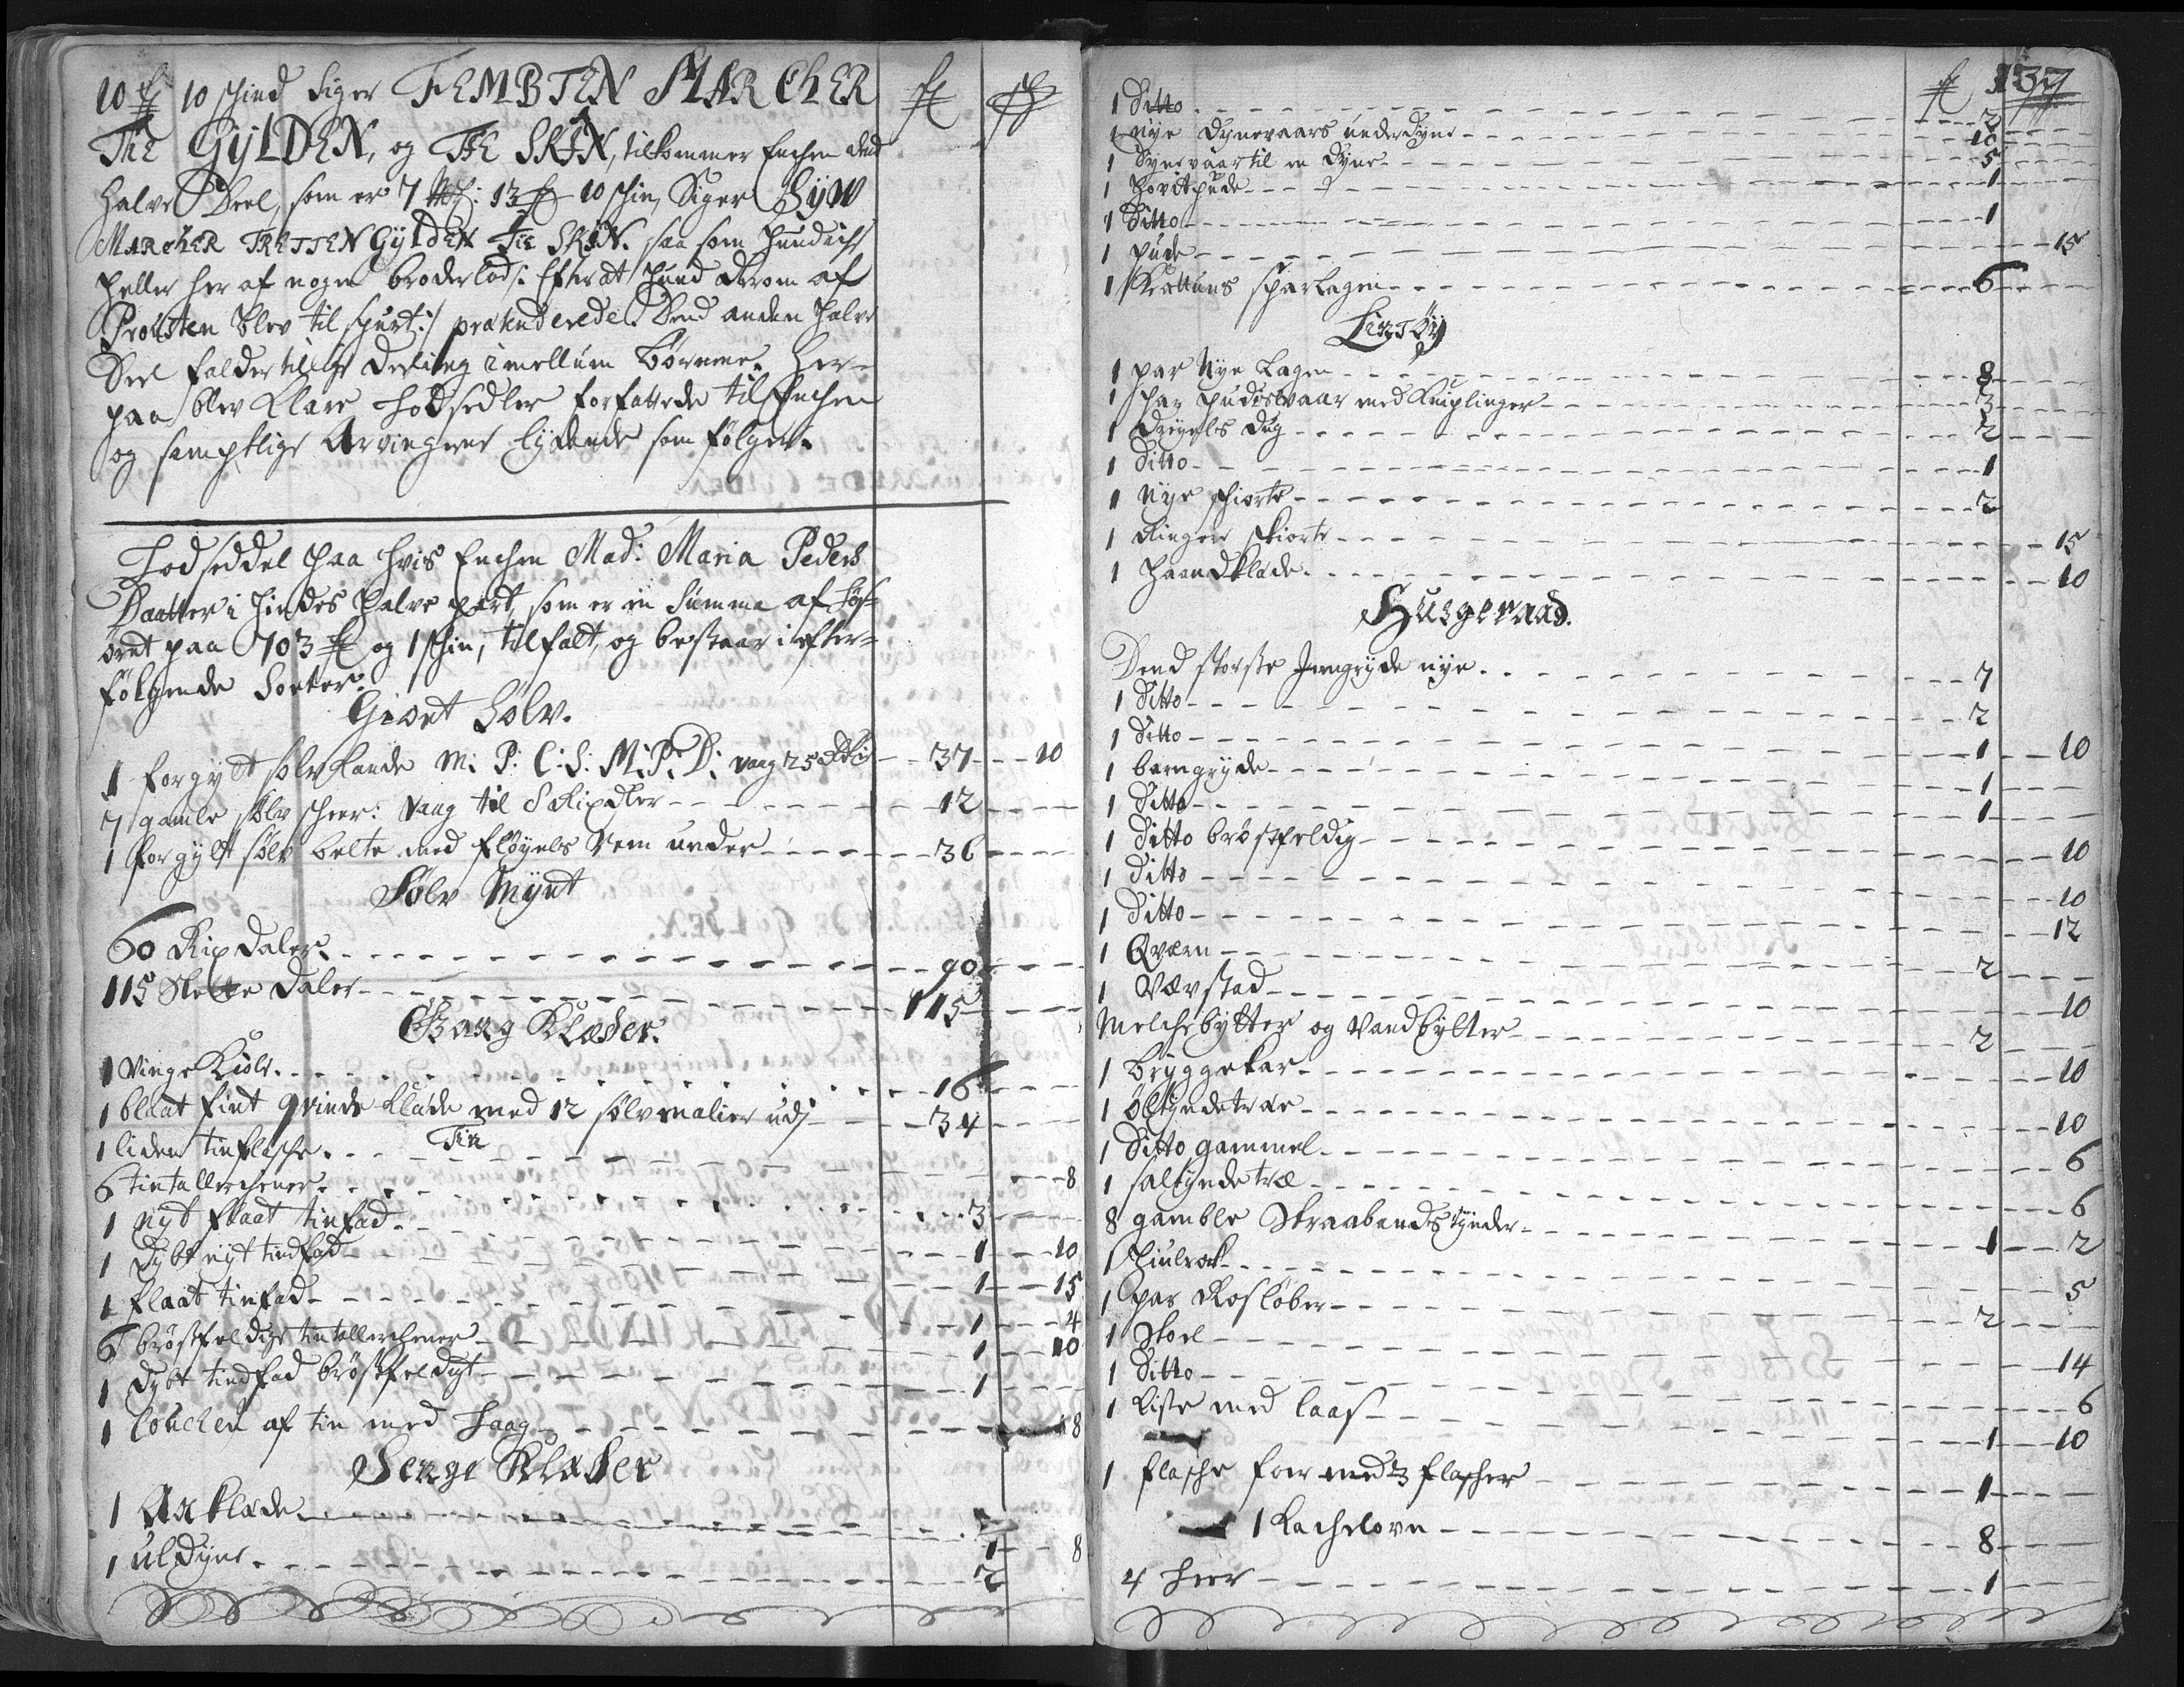 10 fl 10 schind siger FEMBTEN MARCHER fl sch
TIE GyLDEN, og TIE SKIN, tilkommer Enchen dend
halve Deel, som er 7 : 13 fl 10 schin, Siger Syw
MARCHER TRETTEN GyLDEN TIE SKIN. saa som hund ichs
heller her af nogen broderlod /: Efter at hund derom af
Prousten blev til spurt :/ prætenderede. Dend anden halve
Deel falder til lige Deeling imellum Børnene. Her-
paa blev klare Lodsedler forfattede til Enchen
og samptlige Arvingerne lydende som følger.
Lodseddel paa hvis Enchen Mad: Maria Peders
Daatter i hindes halve part, som er en Summa af Løs-
øret paa 703 fl og 1 schin, tilfalt, og bestaar i efter-
følgende Sorter.
Giort Sølv.
1 forgylt sølv kande M: P: C: S: M: P: D: vaag 25 - - 37 - - 10
7 gamle sølv scheer: vaag til 8 Rixdler - - 12
1 forgylt sølv belte med fløyels Rem under - - 36
Sølv Mynt
60 Rixdaler - - 90
115 Slette Daler - - 115
Gang Klæder.
1 Vinge Kiole - - 16
1 blaat fint qvinde klæde med 12 sølvmalier udj - - 34
Tin
1 liden tinflasche - - 8
6 tintallerchener - - 3
1 nyt flaat tinfad - - 1 - - 10
1 dybt nyt tindfad - - 1 - - 15
1 flaat tinfad - - 1 - - 4
6 brøstfeldige tintallerchener - - 1 - - 10
1 dybt tindfad brøstfeldigt - - 1
1 af tin med Laag - - 18
Senge Klæder
1 Aaklæde - - 1 - - 8
1 uldyne - - 2
137
fl sch
1 Ditto - - 2
1 nye dynevaars underdyne - - 10
1 Dynevaar til en dyne - - 5
1 hovitpude - - 1
1 Ditto - - 1
1 pude - - 15
1 Kattuns sparlagen - - 6
LinTøy
1 par Nye Lagen - - 8
1 par pudesvaar med kniplinger - - 3
1 Dreyels dug - - 2
1 Ditto - - 1
1 Nye schiorte - - 2
1 Ringere skiorte - - 15
1 haandklæde - - 10
Husgeraad.
Dend største Jerngryde nye - - 7
1 Ditto - - 2
1 Ditto - - 1 - - 10
1 barngryde - - 1
1 Ditto - - 1
1 Ditto brøstfeldig - - 10
1 Ditto - - 10
1 Ditto - - 12
1 Qværn - - 2
1 Vævstad - - 10
Melchebytter og Vandbytter - - 2
1 bryggekar - - 10
1 øltyndetræe - - 10
1 Ditto gammel - - 6
1 saltyndetræ - - 6
8 gamble Skraabandstynder - - 1 - - 2
1 hiulrok - - 5
1 par Rosløber - - 2
1 Stoel - - 14
1 Ditto - - 6
1 kiste med laas - - 1 - - 10
1 flasche foer med 3 flascher - - 1
1 Kachelovn - - 8
4 Leer - - 1